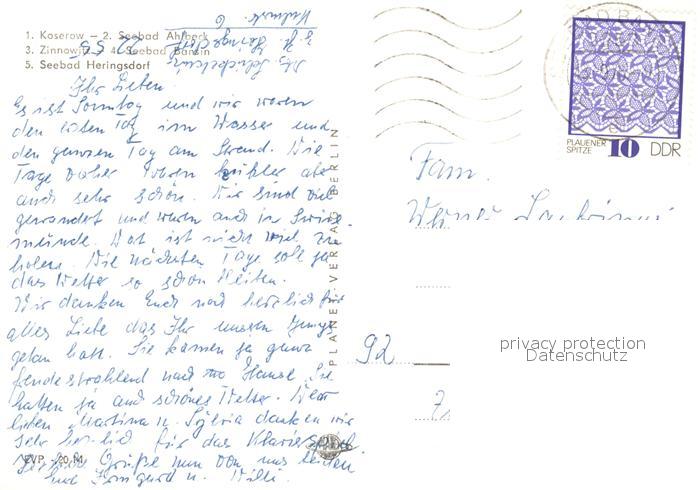 1. Koserow — 2. Seebad Ahlbeck
3. Zinnowitz — 4. Seebad Bansin
5. Seebad Heringsdorf
Ihr Lieben
Es ist Sonntag und wir waren
den ersten Tag im Wasser und
den ganzen Tag am Strand. Die
Tage vorher waren kühler aber
auch sehr schön. Wir sind viel
gewandert und waren auch in Swine-
münde. Dort ist nicht viel zu
holen. Die nächsten Tage soll ja
das Wetter so schön bleiben.
Wir danken Euch noch herzlich für
alles Liebe das Ihr unseren Jungs
getan habt. Sie kamen ja ganz
freudestrahlend nach Hause. Sie
hatten ja auch schönes Wetter. Den
lieben Martina u. Sylvia danken wir
sehr herzlich für das
Herzliche Grüße nun von uns beiden
und Irmgard u. Willi.
EVP -.20 M
PLANET-VERLAG BERLIN
PLAUENER
SPITZE 10 DDR
Fam.
Werner
92
privacy protection
Datenschutz